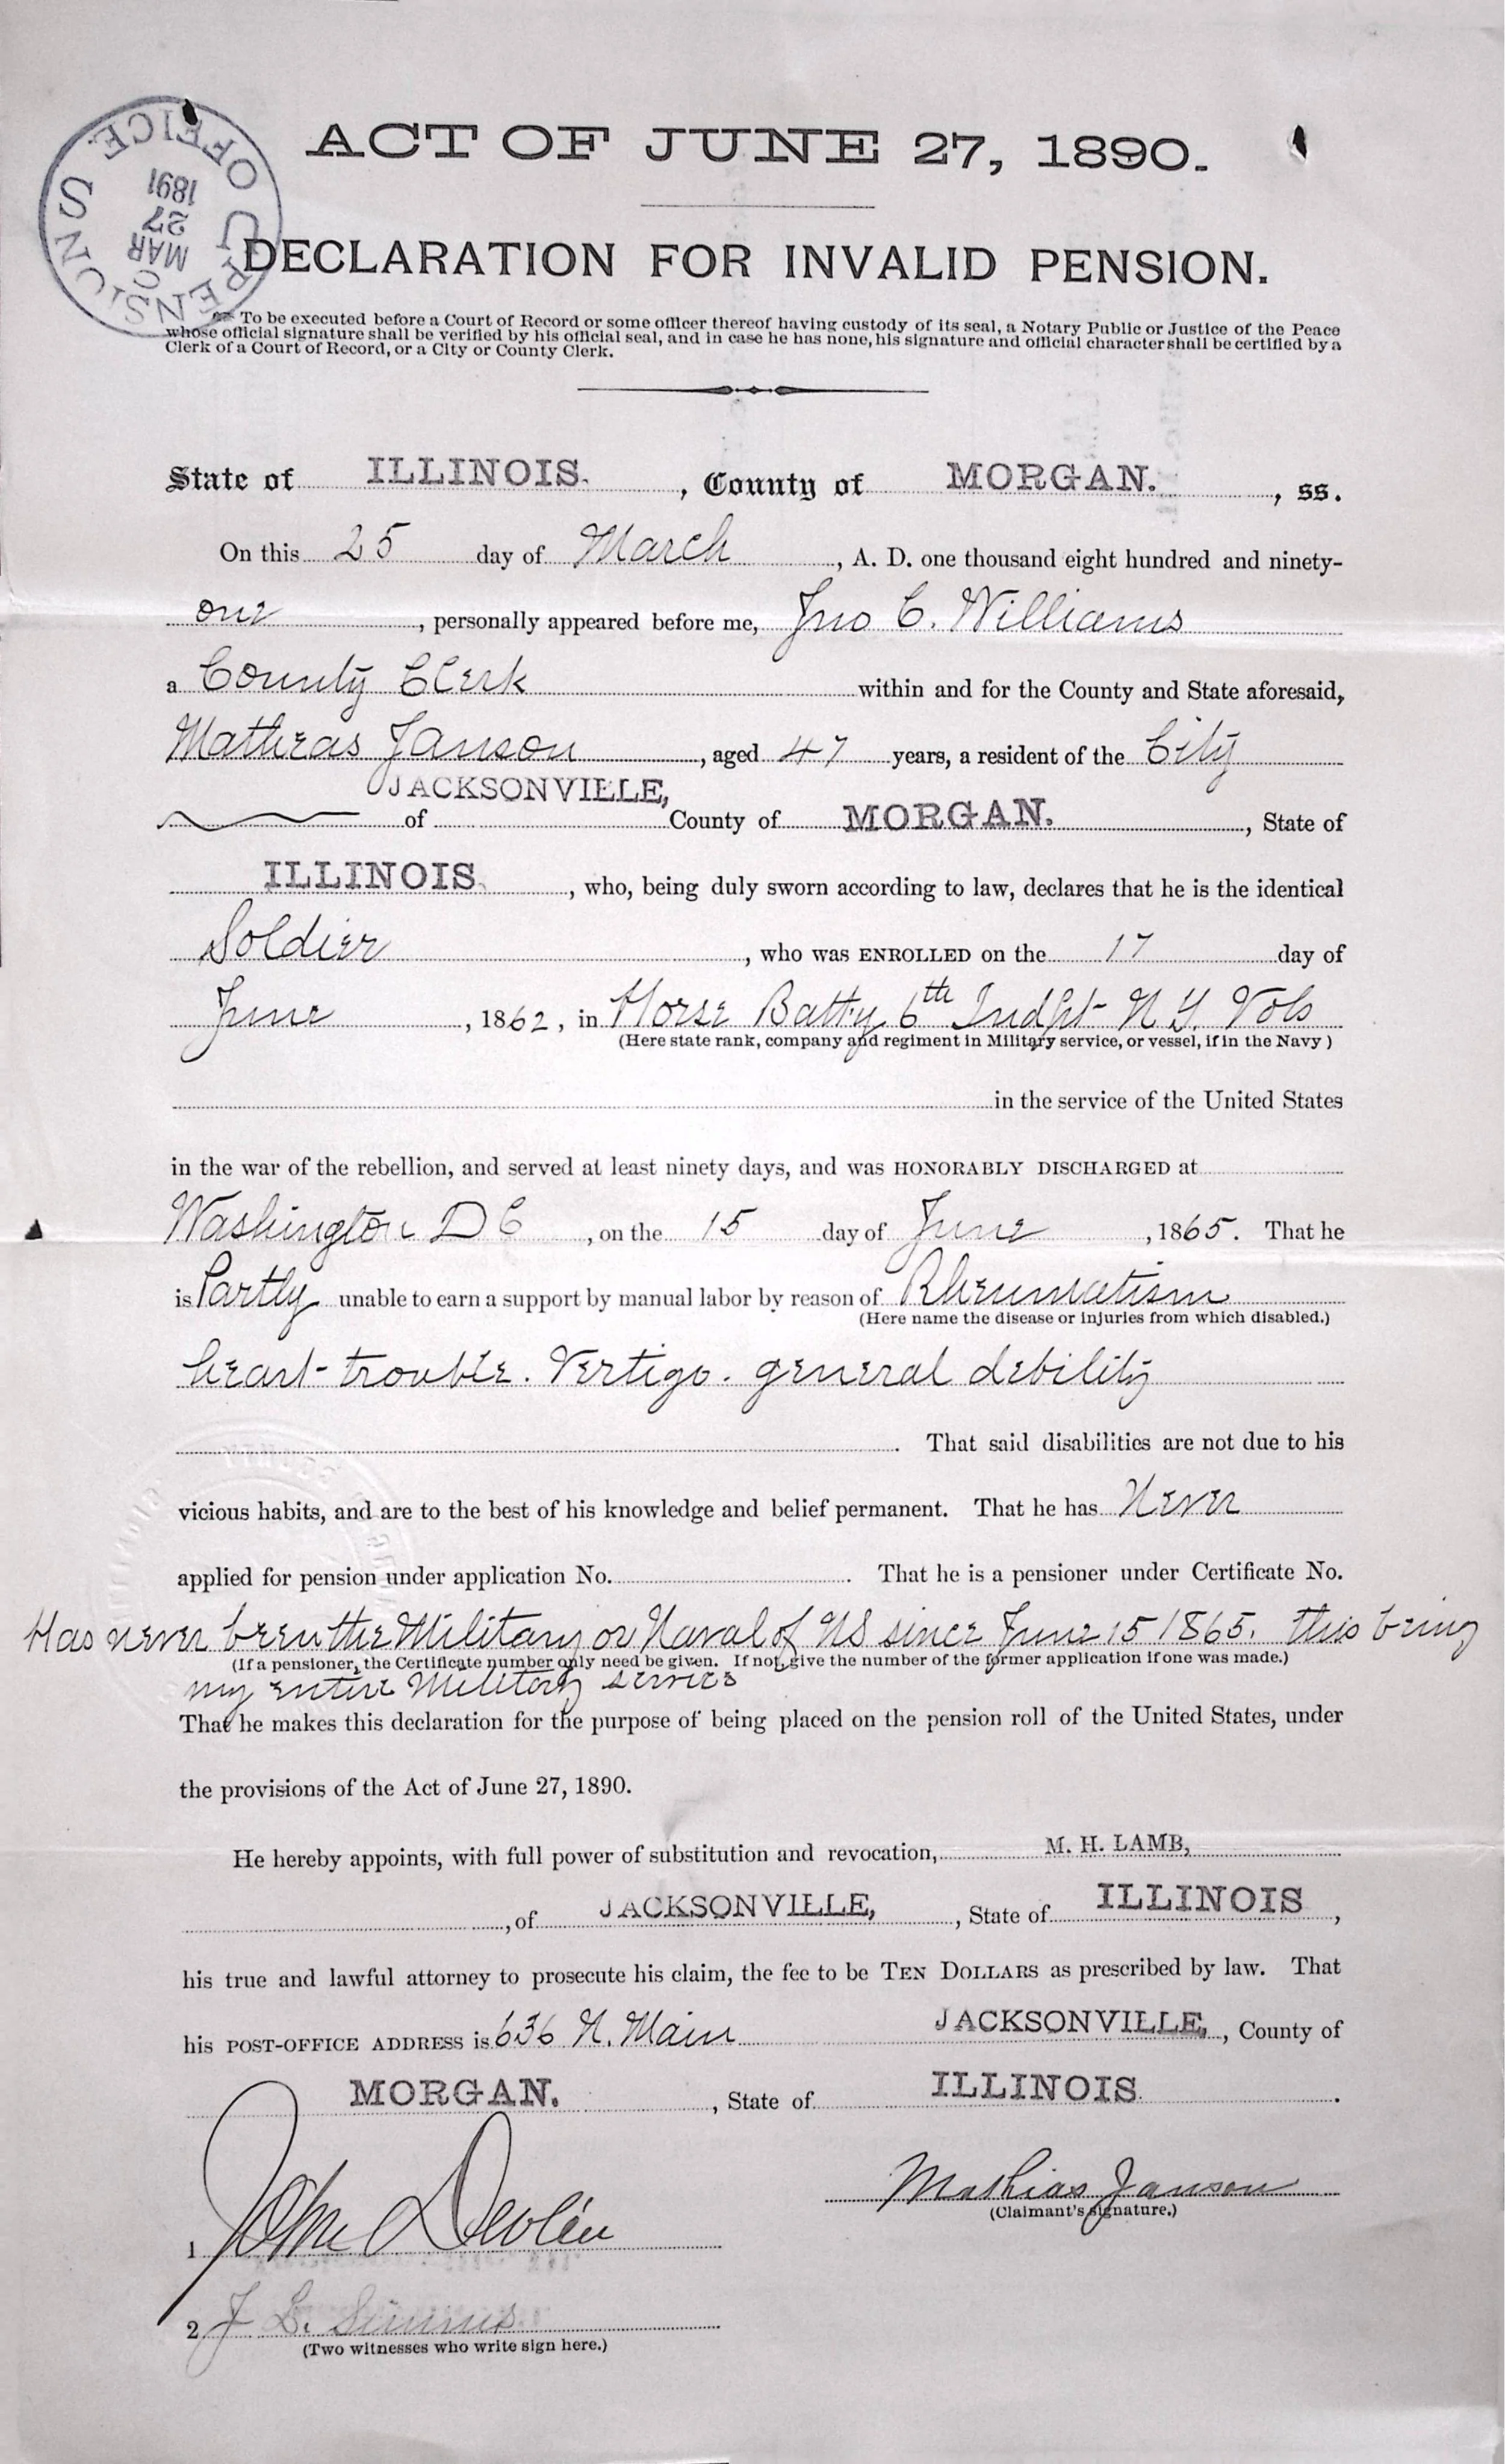 ACT OF JUNE 27, 1890.
U.S. PENSION OFFICE
MAR
27
1891
DECLARATION FOR INVALID PENSION.
To be executed before a Court of Record or some officer thereof having custody of its seal, a Notary Public or Justice of the Peace
whose official signature shall be verified by his official seal, and in case he has none, his signature and official character shall be certified by a
Clerk of a Court of Record, or a City or County Clerk.
State of ILLINOIS. , County of MORGAN. , ss.
On this 25 day of March , A. D. one thousand eight hundred and ninety-
one , personally appeared before me, Jno C. Williams
a County Clerk within and for the County and State aforesaid,
Matheas Janson , aged 47 years, a resident of the City
of JACKSONVILLE, County of MORGAN. , State of
ILLINOIS. , who, being duly sworn according to law, declares that he is the identical
Soldier , who was ENROLLED on the 17 day of
June , 1862, in Horse Batty 6th Indpt N Y. Vols
(Here state rank, company and regiment in Military service, or vessel, if in the Navy )
in the service of the United States
in the war of the rebellion, and served at least ninety days, and was HONORABLY DISCHARGED at
Washington D C , on the 15 day of June , 1865. That he
is Partly unable to earn a support by manual labor by reason of Rheumatism
(Here name the disease or injuries from which disabled.)
heart trouble. Vertigo. general debility
. That said disabilities are not due to his
vicious habits, and are to the best of his knowledge and belief permanent. That he has Never
applied for pension under application No. . That he is a pensioner under Certificate No.
Has never been the Military or Naval of US since June 15 1865. this being
(If a pensioner, the Certificate number only need be given. If not, give the number of the former application if one was made.)
my entire Military service
That he makes this declaration for the purpose of being placed on the pension roll of the United States, under
the provisions of the Act of June 27, 1890.
He hereby appoints, with full power of substitution and revocation, M. H. LAMB,
, of JACKSONVILLE, , State of ILLINOIS ,
his true and lawful attorney to prosecute his claim, the fee to be TEN DOLLARS as prescribed by law. That
his POST-OFFICE ADDRESS is 636 N. Main JACKSONVILLE, , County of
MORGAN. , State of ILLINOIS .
Mathias Janson
(Claimant's signature.)
1 John Devlin
2 J L. Simms
(Two witnesses who write sign here.)